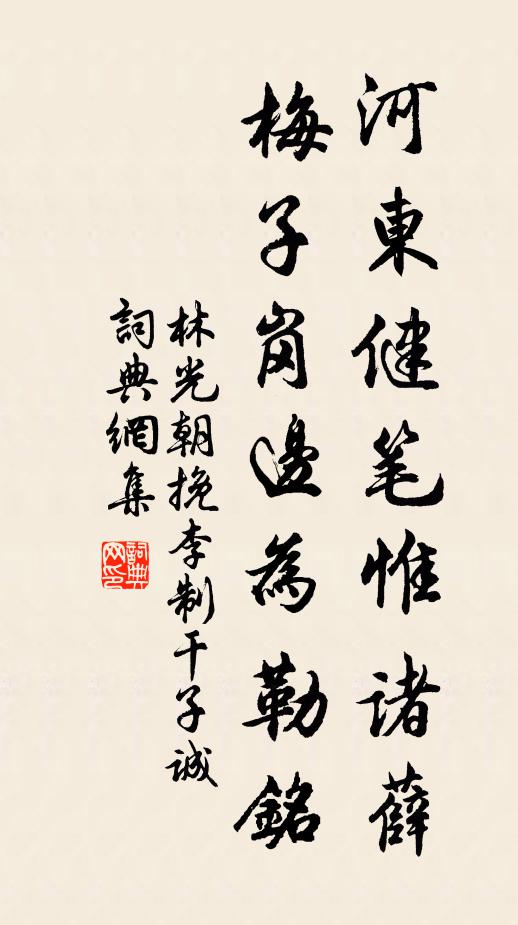 河東健笔惟諸薛
梅子崗邊為勒銘
林光朝挽李制干子誠
詞典網集
詞典网印